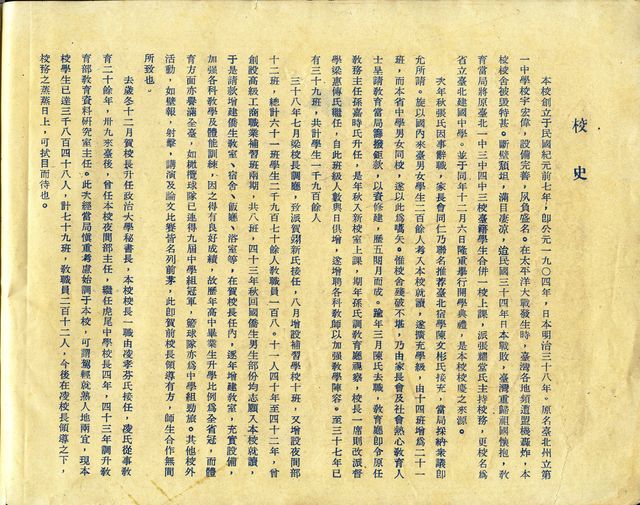 校史
本校創立于民國紀元前七年，卽公元一九〇四年，日本明治三十八年。原名臺北州立第
一中學校宇宏偉，設備完善，夙負盛名。在太平洋大戰發生時，臺灣各地頻遭盟機轟炸，本
校校舍被毀特甚。斷壁頽垣，滿目凄凉，迨民國三十四年日本戰敗，臺灣重歸祖國懷抱，敎
育當局將原臺北一中三中四中三校臺籍學生合併一校上課，派張耀堂氏主持校務，更校名爲
省立臺北建國中學。並于同年十二月六日隆重舉行開學典禮，是本校校慶之來源。
次年秋張氏因事辭職，家長會同仁乃聯名推荐臺北宿學陳文彬氏接充，當局採納衆議卽
允所請。旋以國內來臺男女學生二百餘人考入本校就讀，遂擴充學級，由十四班增爲二十一
班，而本省中學男女同校，遂以此爲嚆矢。惟校舍殘破不堪，乃由家長會及社會熱心敎育人
士呈請敎育當局籌撥鉅款，以資修建，歷五閱月而成。踰年三月陳氏去職，敎育廳卽令原任
敎務主任孫嘉時氏升任，是年秋入新校室上課，期年孫氏調敎育廳視察，校長一席則改派督
學梁惠溥氏繼任，自此班級人數與日俱增，遂增聘各科敎師以加强敎學陣容。至三十七年已
有三十九班，共計學生一千九百餘人
三十八年七月梁校長調廳，致派賀翊新氏接任，八月增設補習學校十班，又增設夜間部
十二班，總計六十一班學生二千九百七十餘人敎職員一百八。十一人四十年至四十二年，曾
創設高級工商職業補習班兩期，共八班，四十三年秋回國僑生男生部份均志願入本校就讀，
于是請欵增建僑生敎室、宿舍、飯廳、浴室等，在賀校長任內，逐年增建敎室，充實設備，
加强各科敎學及體能訓練，因之得有良好成績，故歷年高中畢業生升學比例爲全省冠，而體
育方面亦譽滿全臺，如橄欖球隊已連得九屆中學組冠軍，籃球隊亦爲中學組勁旅。其他校外
活動，如壁報，射擊，講演及論文比賽皆名列前茅，此卽賀前校長領導有方，師生合作無間
所致也。
去歲冬十二月賀校長升任政治大學秘書長，本校校長一職由凌孝芬氏接任，凌氏從事敎
育二十餘年，卅九年來臺後，曾任本校夜間部主任，職任虎尾中學校長四年，四十三年調升敎
育部敎育資料研究室主任。此次經當局愼重考慮始調于本校，可謂駕輕就熟人地兩宜，現本
校學生已達三千八百四十八人，計七十九班，敎職員二百十二人，今後在凌校長領導之下，
校務之蒸蒸日上，可拭目而待也。